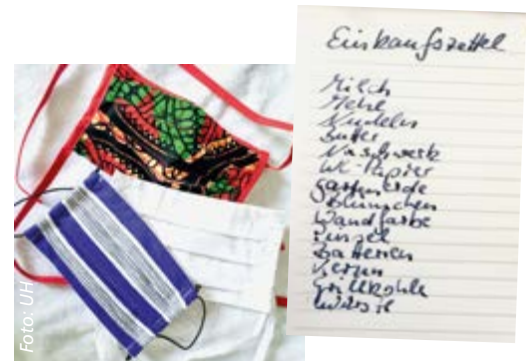 Foto: UH
Einkaufszettel
Milch
Mehl
Nudeln
Butter
Naschwerk
WC-Papier
Gartenerde
Blümchen
Wandfarbe
Pinsel
Batterien
Kerzen
Grillkohle
Würste